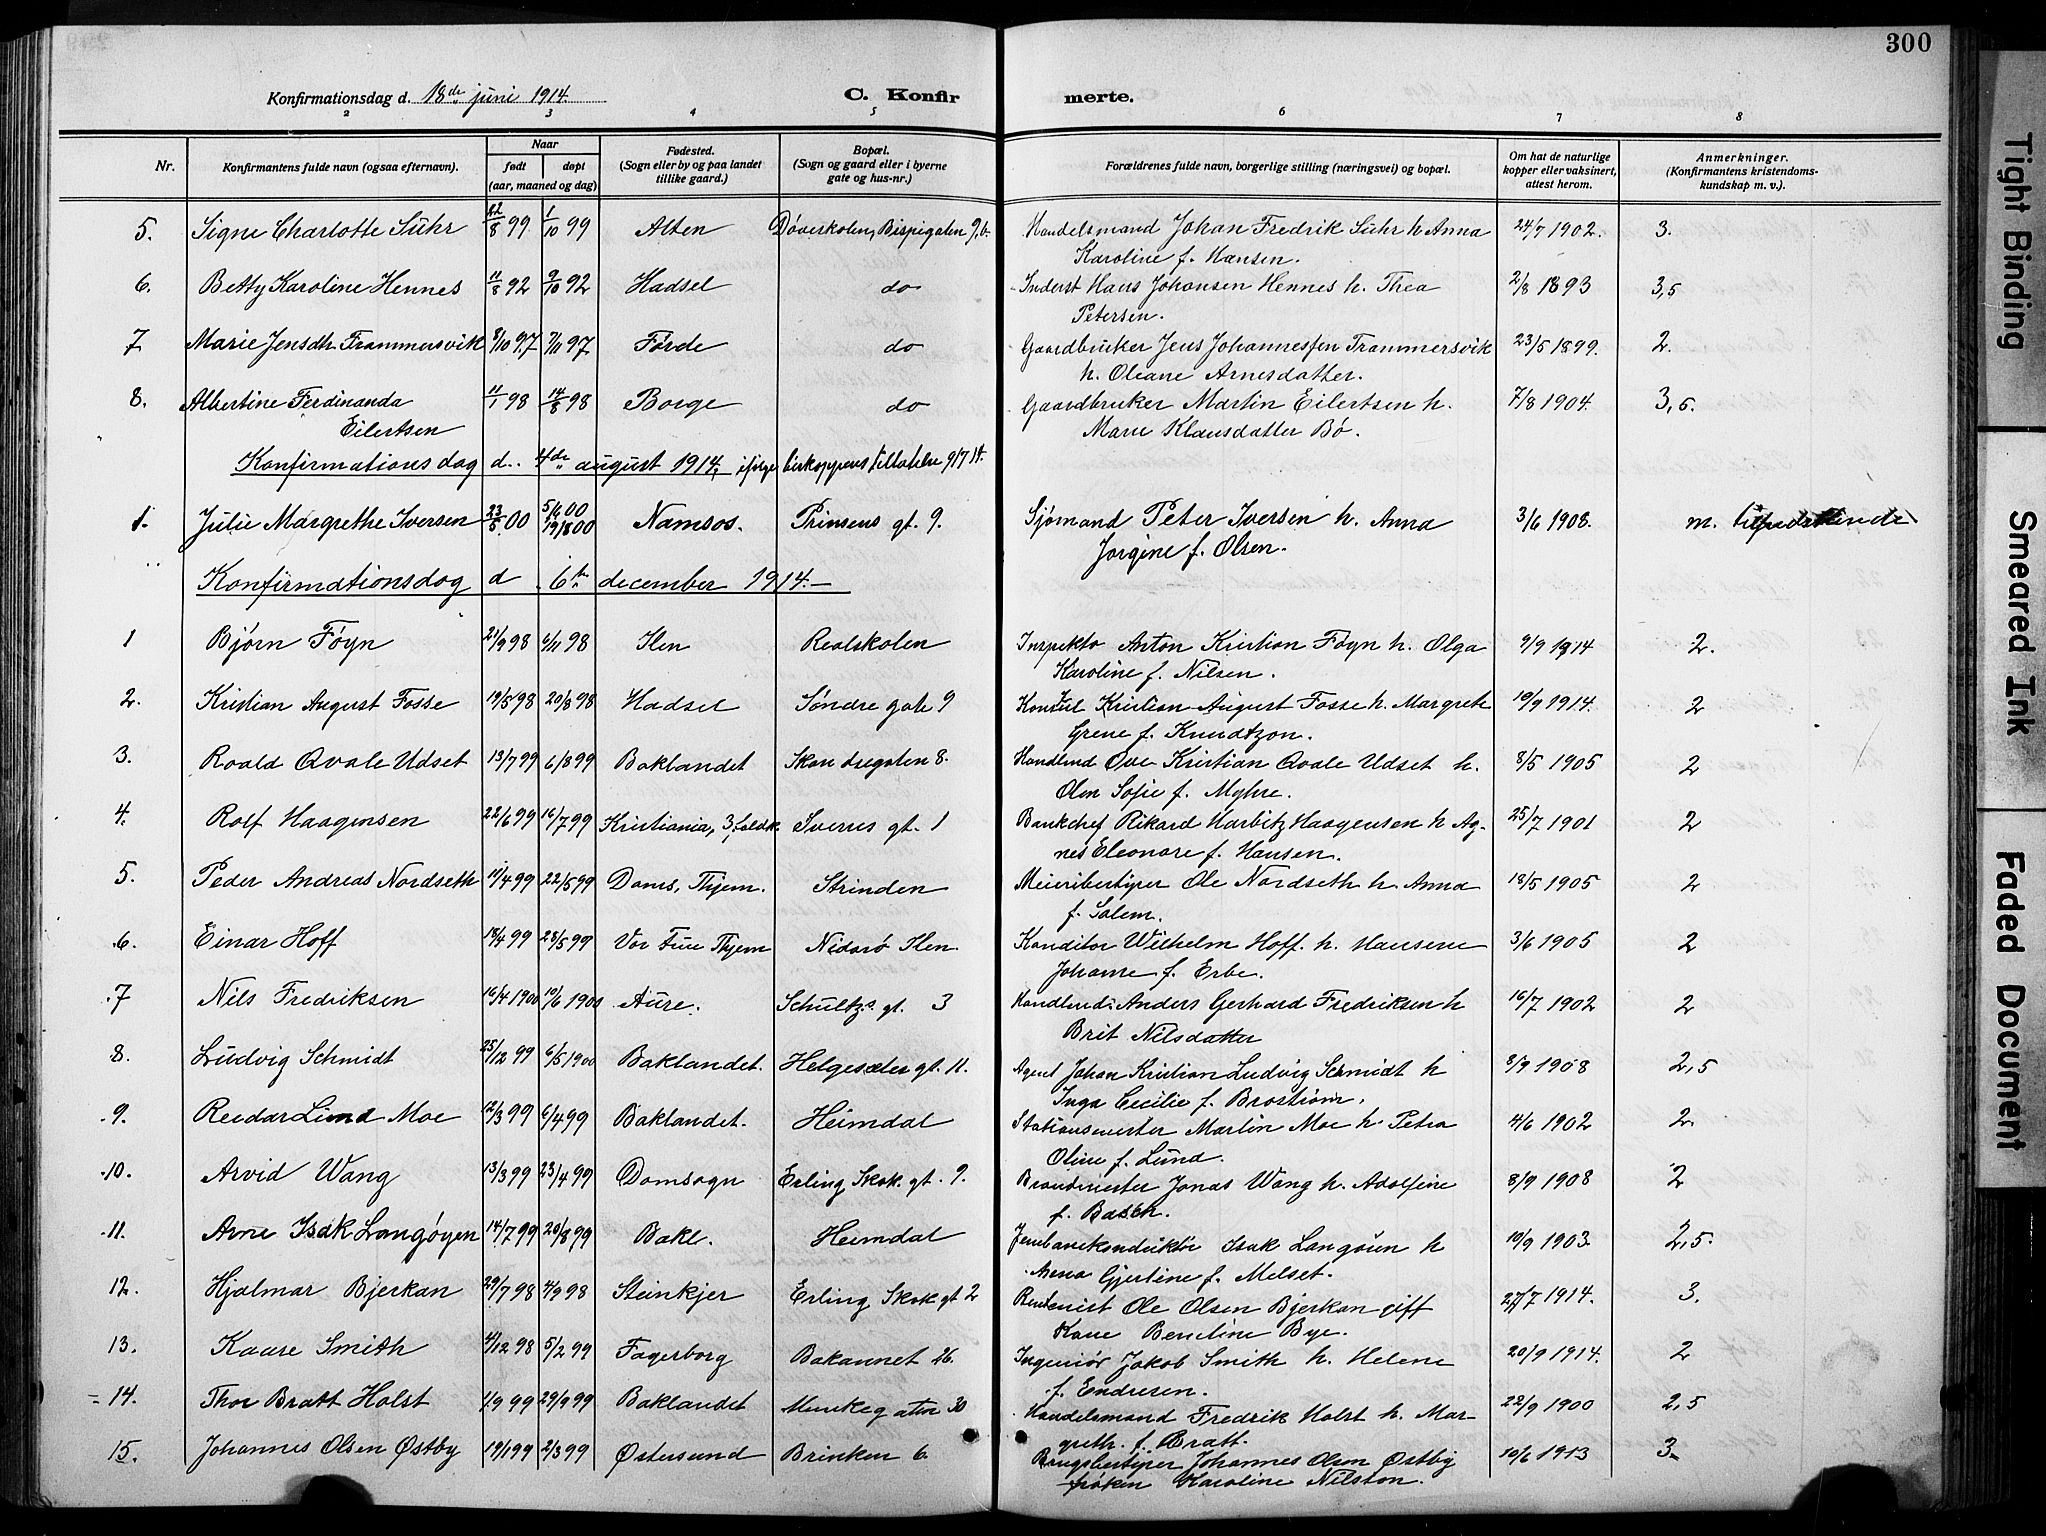 300
Konfirmationsdag d. 18de juni 1914. C. Konfir merte.
2 3 4 5 6 7 8
Nr. Konfirmantens fulde navn (ogsaa efternavn). Naar født døpt (aar, maaned og dag) Fødested. (Sogn eller by og paa landet tillike gaard.) Bopæl. (Sogn og gaard eller i byerne gate og hus-nr.) Forældrenes fulde navn, borgerlige stilling (næringsvei) og bopæl. Om hat de naturlige kopper eller vaksinert, attest herom. Anmerkninger. (Konfirmantens kristendomskundskap m. v.)
5. Signe Charlotte Suhr 22/8 99 1/10 99 Alten Døveskolen, Bispegaten 9,b. Handelsmand Johan Fredrik Suhr h. Anna 24/7 1902. 3.
Karoline f. Hansen.
6. Betty Karoline Hennes 11/8 92 9/10 92 Hadsel do Inderst Hans Johansen Hennes h. Thea 2/8 1893 3,5
Petersen.
7 Marie Jensdtr Frammersvik 8/10 97 7/11 97 Førde do Gaardbruker Jens Johannessen Frammersvik 23/5 1899. 2.
h. Oleane Arnesdatter.
8. Albertine Ferdinanda 11/1 98 14/8 98 Borge do Gaardbruker Martin Eilertsen h. 7/8 1904. 3,5.
Eilertsen Marie Klausdatter Bø.
Konfirmationsdag d. 4de august 1914, ifølge biskoppens tillatelse 9/7 14.
1. Julie Margrethe Iversen 23/5 00 5/6 00 19/8 00 Namsos. Prinsens gt. 9. Sjømand Peter Iversen h. Anna 3/6 1908. m.
Jorgine f. Olsen.
Konfirmationsdag d. 6te december 1914.
1 Bjørn Føyn 21/9 98 6/11 98 Ilen Realskolen Inspektø Anton Kristian Føyn h. Olga 9/9 1914 2.
Karoline f. Nilsen.
2. Kristian August Fosse 19/5 98 20/8 98 Hadsel Søndre gate 9 Konsul Kristian August Fosse h. Margrete 10/9 1914. 2
Grene f. Knudtzon.
3. Roald Qvale Udset 13/7 99 6/8 99 Baklandet Skandsegaten 8. Handlend Ove Kristian Qvale Udset h. 8/5 1905 2
Olen Sofie f. Myhre.
4. Rolf Haagensen 22/6 99 16/7 99 Kristiania, Sverres gt. 1 Bankchef Rikard Harbitz Haagensen h Ag- 25/7 1901 2
nes Eleonore f. Hansen.
5. Peder Andreas Nordseth 11/4 99 22/5 99 Doms, Thjem. Strinden Meieribestyrer Ole Nordseth h. Anna 18/5 1905 2
f. Solem.
6. Einar Hoff 18/4 99 28/5 99 Vor Frue Thjem Nidarø Ilen Konditor Wilhelm Hoff. h. Hansine 3/6 1905 2
Johanne f. Erbe.
7 Nils Fredriksen 16/4 1900 10/6 1900 Aure. Schultz.s gt. 3 Handlend: Anders Gerhard Fredriksen h 16/7 1902 2
Brit Nilsdatter
8. Ludvig Schmidt 25/12 99 6/5 1900 Baklandet. Helgesæter gt. 11. Agent Johan Kristian Ludvig Schmidt h 8/9 1908 2,5
Inga Cecilie f. Brostrøm.
9. Reidar Lund Moe 12/3 99 6/4 99 Baklandet. Heimdal Stationsmester Martin Moe h. Petra 4/6 1902 2.
Oline f. Lund.
10. Arvid Wang 13/3 99 23/4 99 Domsogn Erling Skak. gt. 9. Brandmester Jonas Wang h. Adolfine 8/9 1908 2
f. Basch.
11. Arne Isak Langøyen 14/7 99 20/8 99 Bakl. Heimdal Jernbanekonduktør Isak Langøien h 10/9 1903. 2,5.
Anna Gjertine f. Melset.
12. Hjalmar Bjerkan 29/7 98 4/9 98 Steinkjer Erling Skak gt 2 Rentenist Ole Olsen Bjerkan gift 27/7 1914. 3.
Kone Bendine Bye.
13. Kaare Smith 4/12 98 5/2 99 Fagerborg Bakaunet 26. Ingeniør Jakob Smith h. Helene 20/9 1914. 2
f. Endresen.
14. Thor Bratt Holst 1/9 99 29/9 99 Baklandet Munkegaten 30 Handelsmand Fredrik Holst h. Mar- 22/9 1900 2,5
greth. f. Bratt.
15. Johannes Olsen Østby 19/1 99 2/3 99 Østersund Brinken 6. Brugsbestyrer Johannes Olsen Østby 10/6 1913 3-
frøken Karoline Nilston.
Tight Binding
Smeared Ink
Faded Document